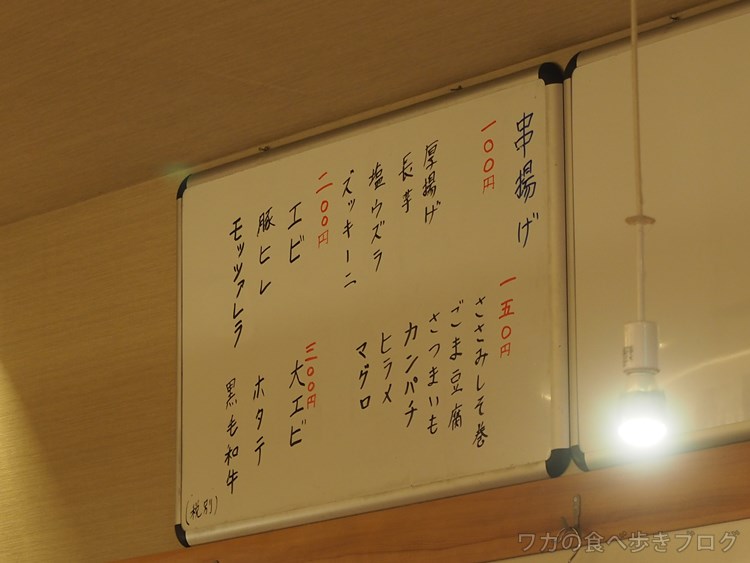 串揚げ
一〇〇円
厚揚げ
長芋
塩ウズラ
ズッキーニ
一五〇円
ささみしそ巻
ごま豆腐
さつまいも
カンパチ
ヒラメ
マグロ
二〇〇円
エビ
豚ヒレ
モッツァレラ
三〇〇円
大エビ
ホタテ
黒毛和牛
(税別)
ワカの食べ歩きブログ